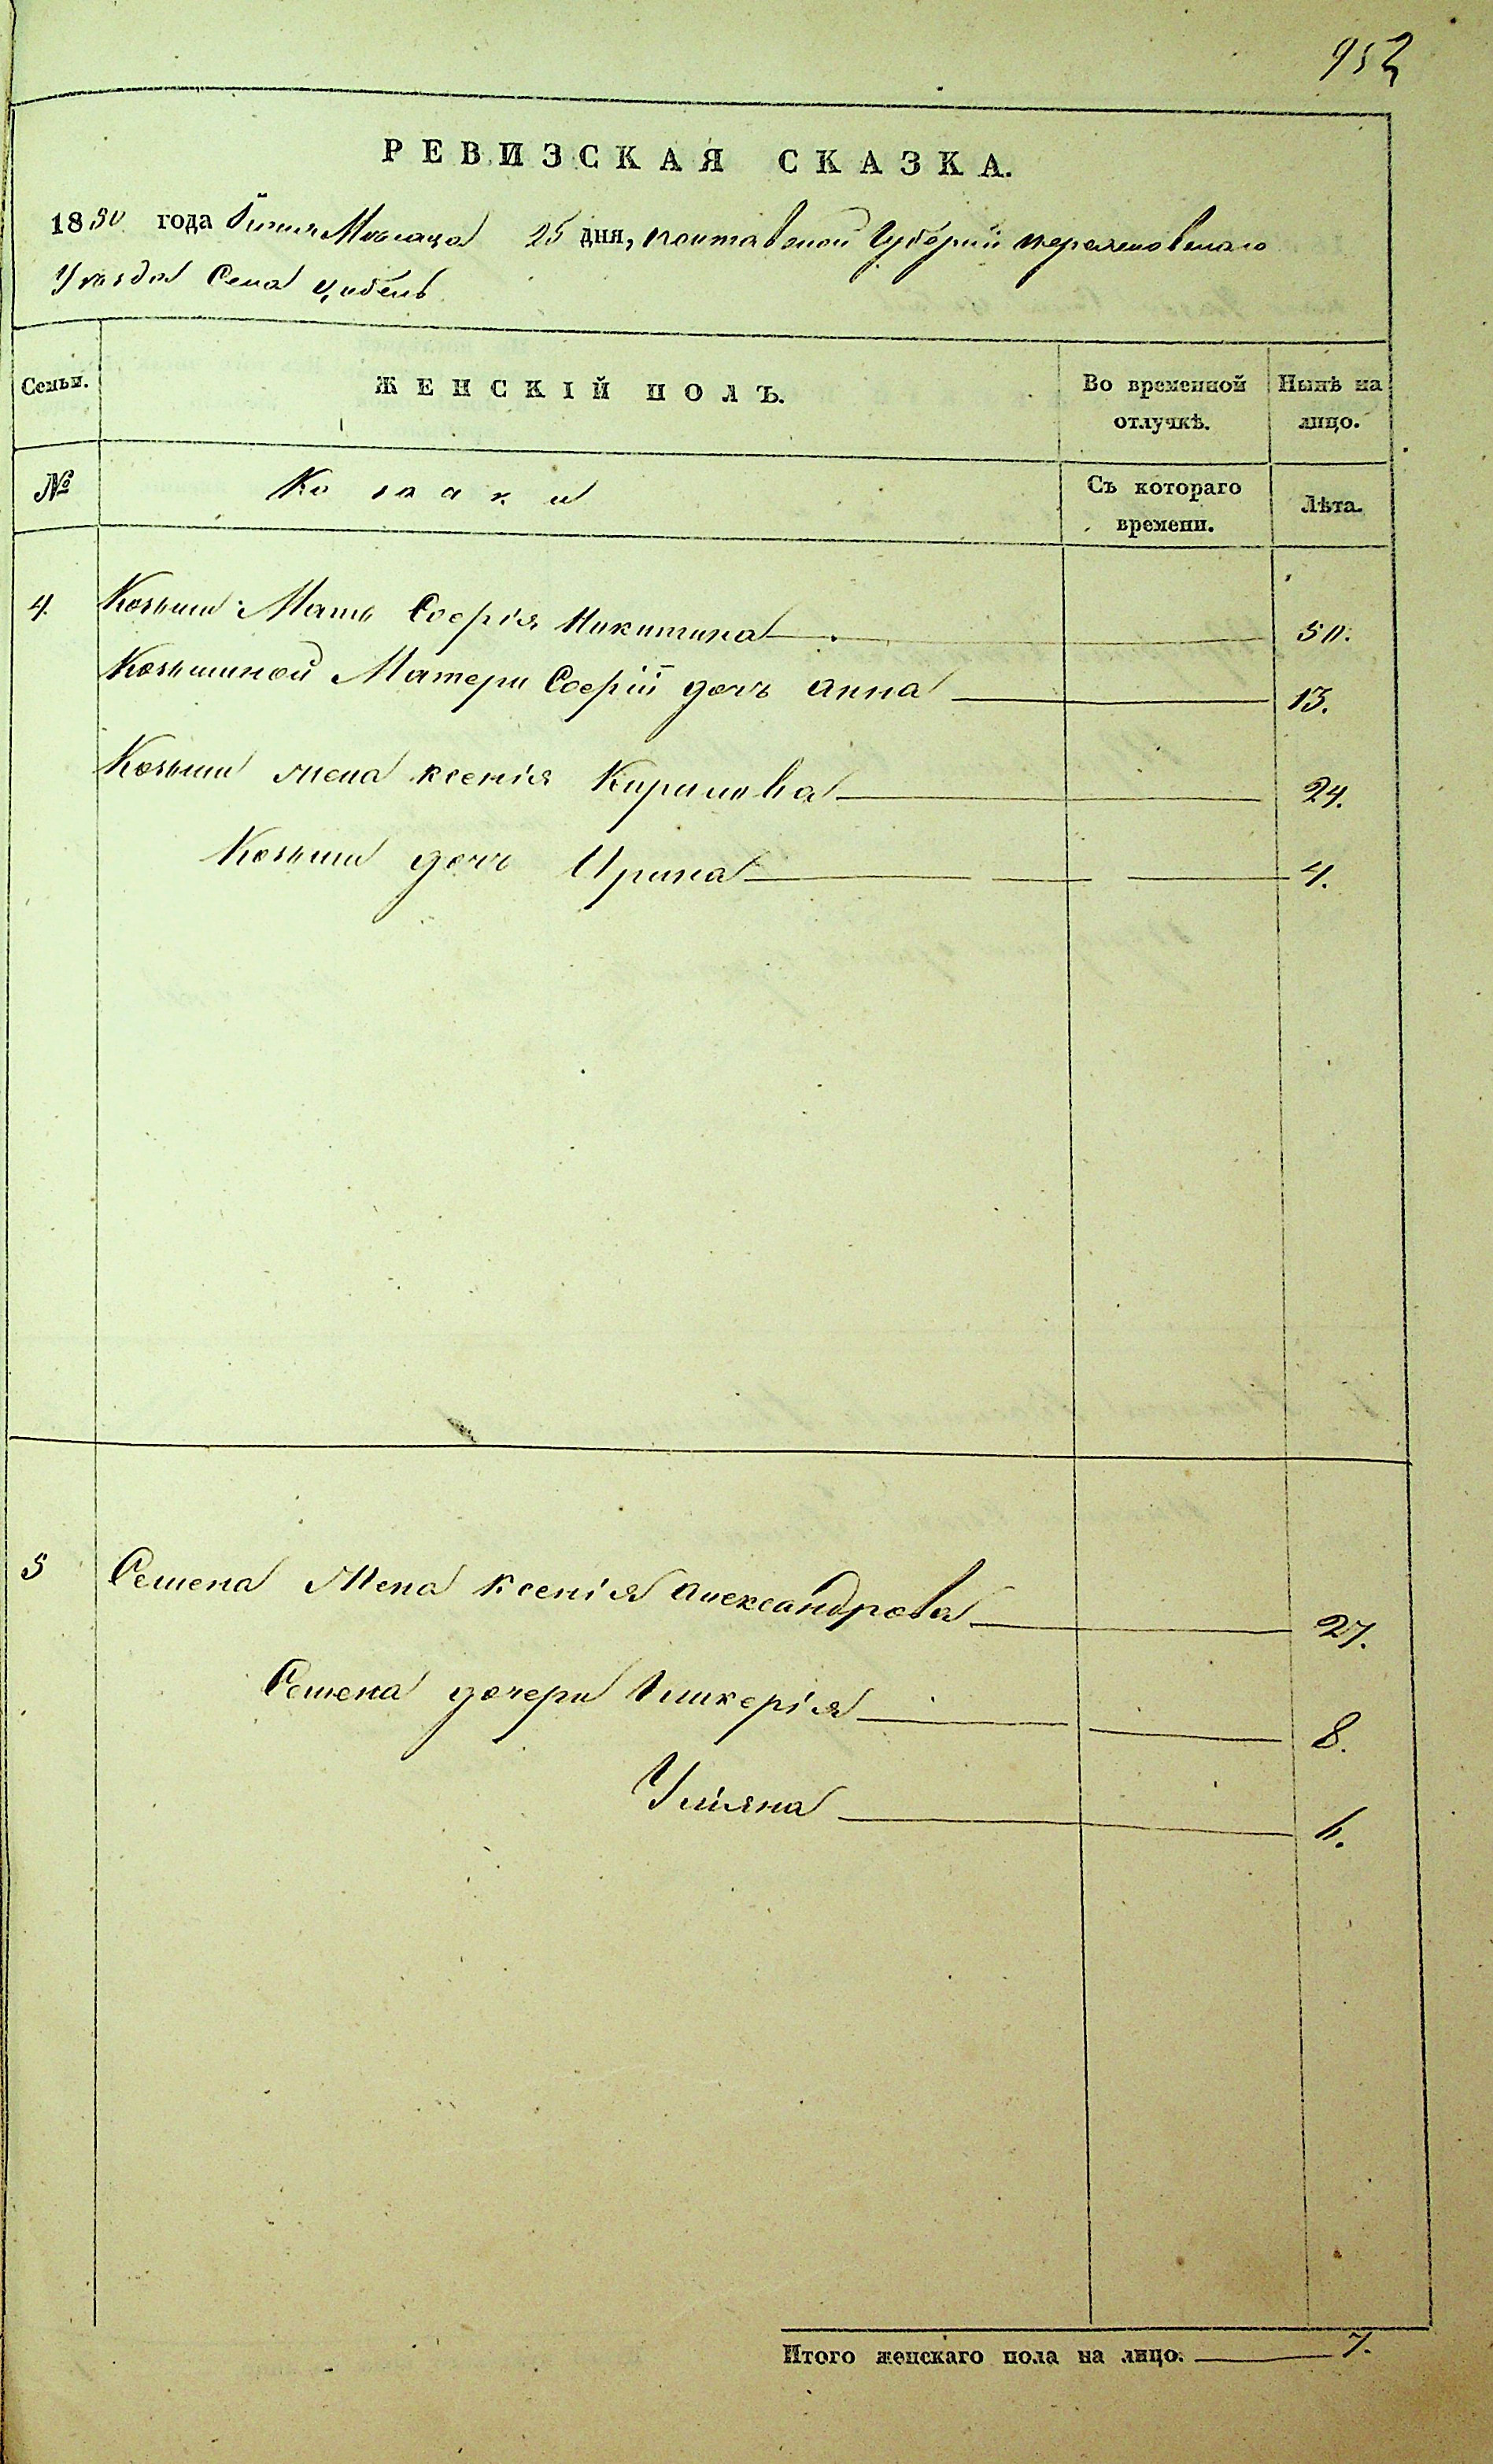 952
РЕВИЗСКАЯ СКАЗКА.
1850 года Іюня Мѣсяца 25 дня, полтавской Губерніи переяславскаго
Уѣзда Села Цибель
Семьи. ЖЕНСКІЙ ПОЛЪ. Во временной отлучкѣ. Нынѣ на лицо.
№ Козаки Съ котораго времени. Лѣта.
4. Козьмы Мать Софія Никитина 50.
Козьминой Матери Софіи дочь анна 13.
Козьмы жена ксенія Кирилова 24.
Козьмы дочь Ирина 4.
5 Семена Жена Ксенія александрова 27.
Семена дочери Гликерія 8.
Уліяна 6.
Итого женскаго пола на лицо. 7.